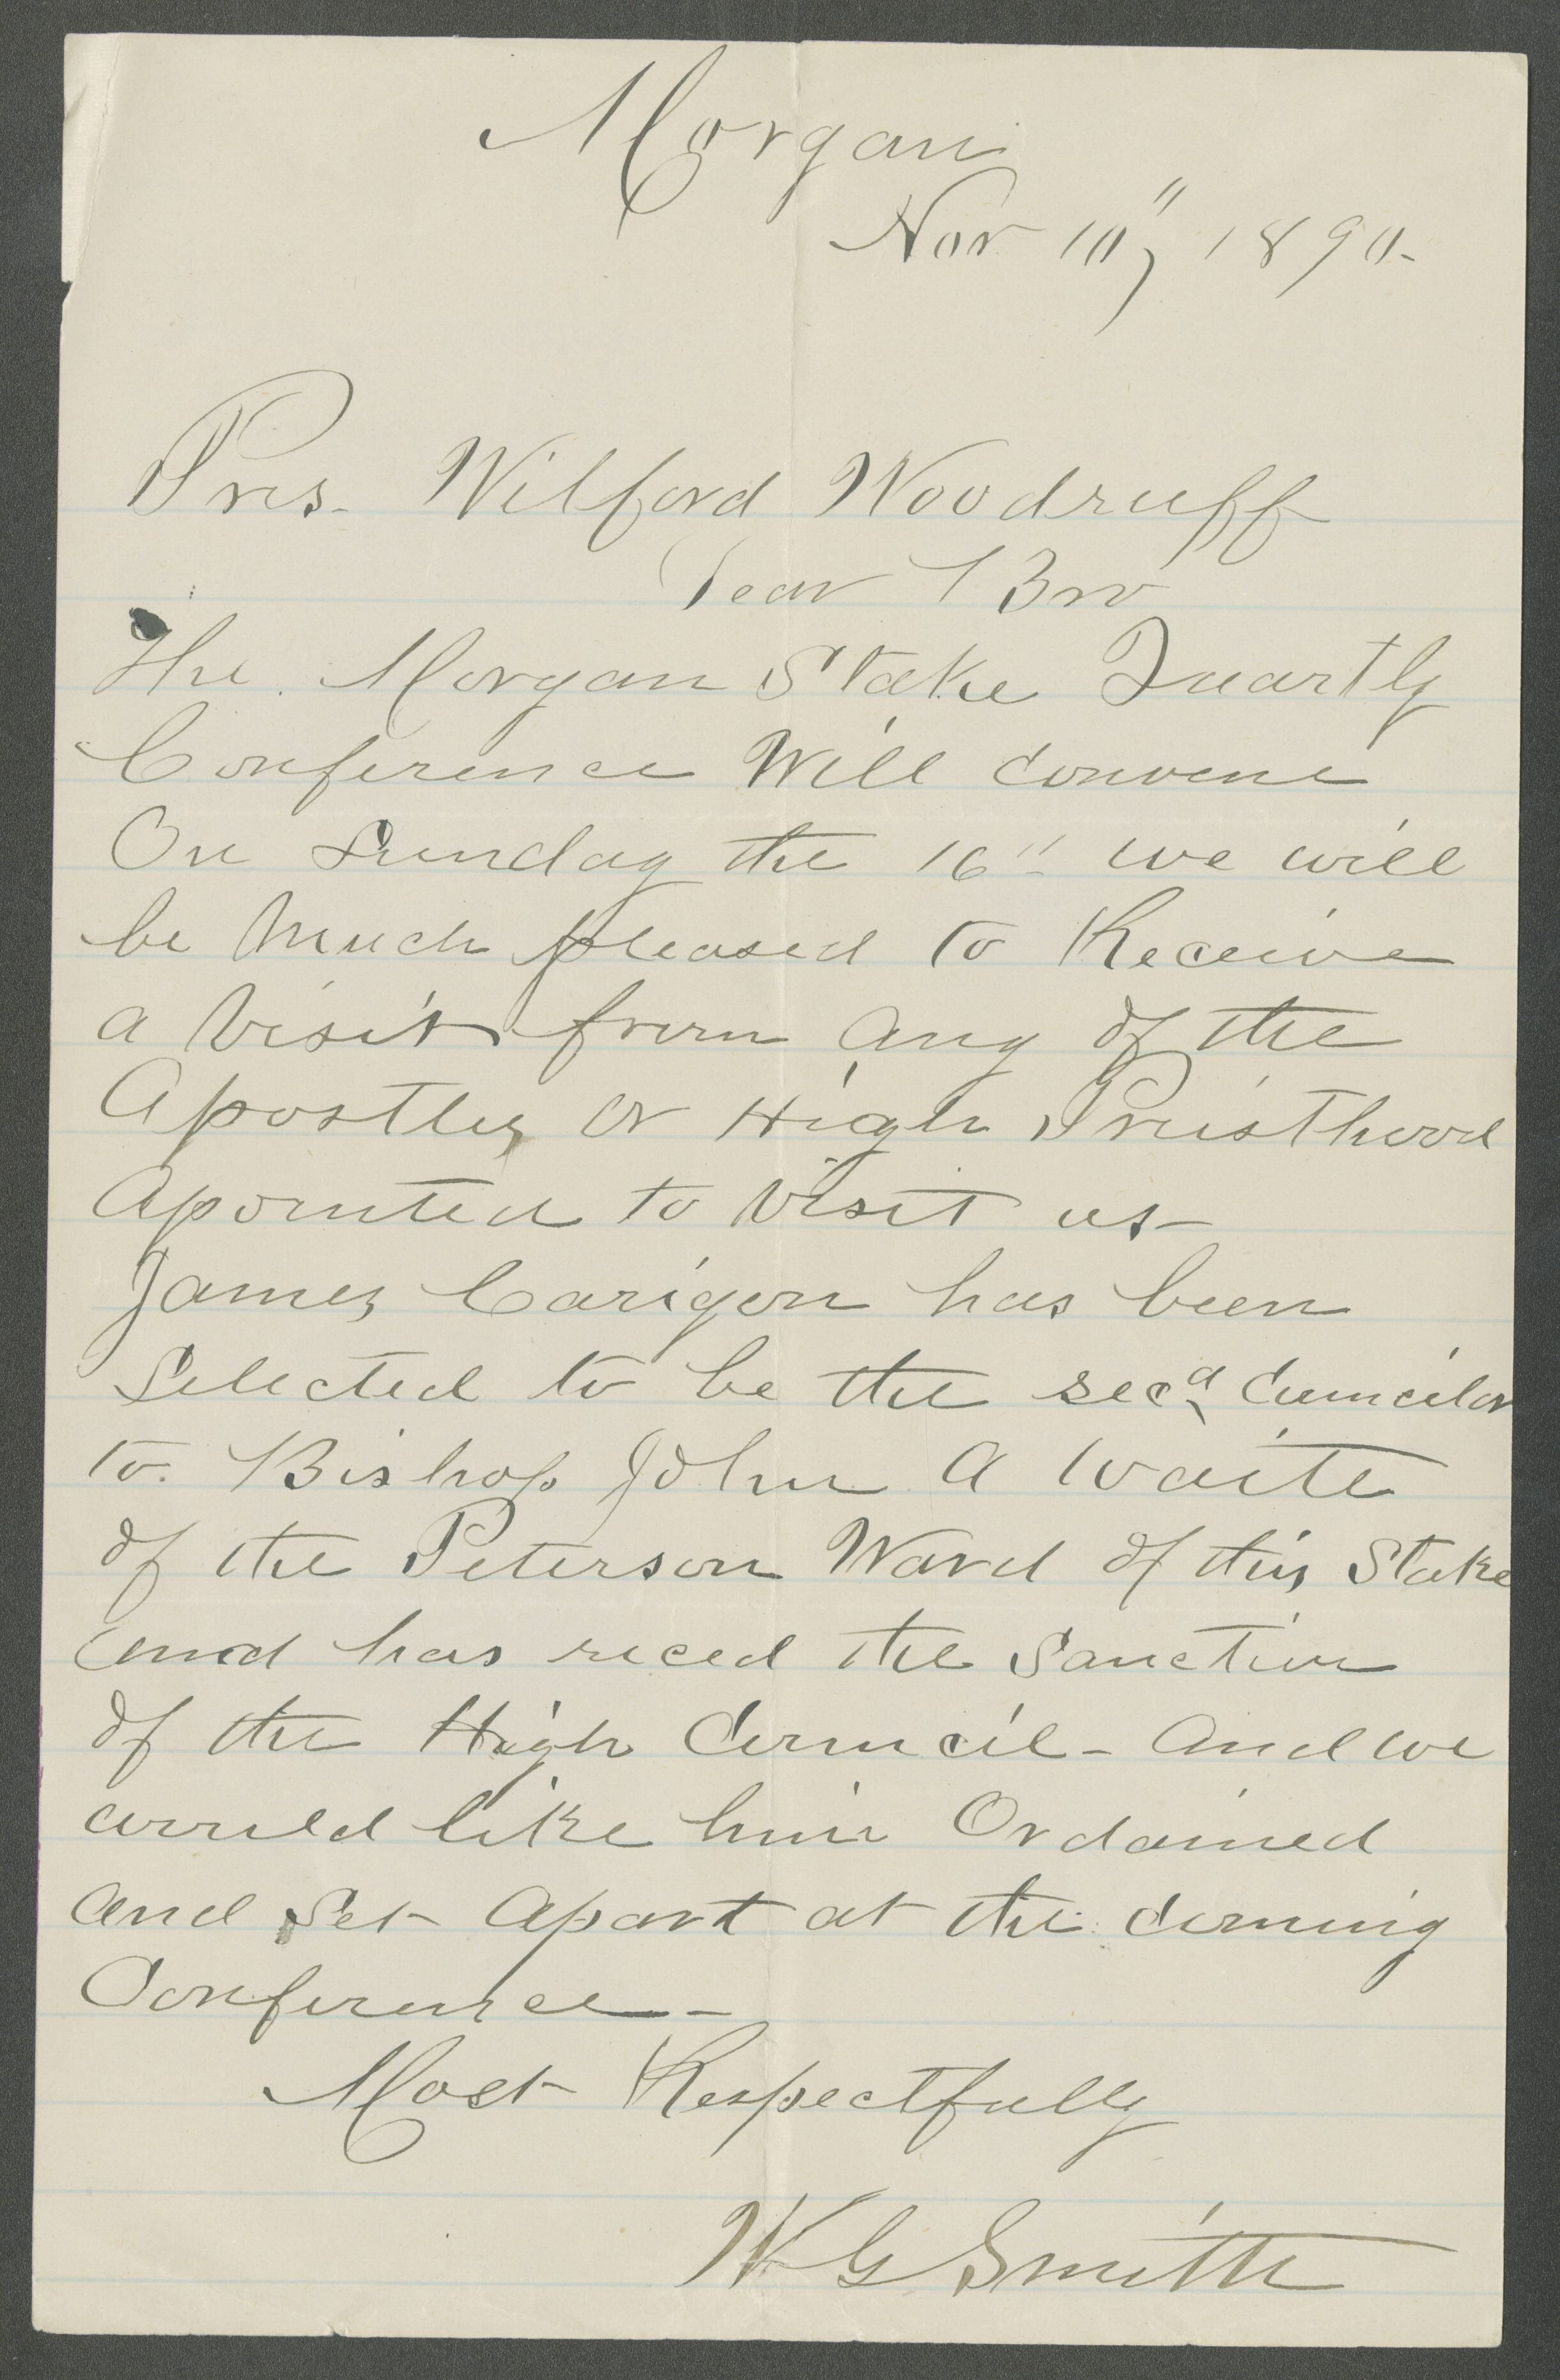 Morgan
Nov 10", 1890-
Pres- Wilford Woodruff
Dear Bro
The Morgan Stake Quartly
Conference Will convene
On Sunday the 16" we will
be Much pleased to Receive
a Visit from any of the
Apostles or High Priesthood
Apointed to Visit us-
James Carigon has been
Selected to be the secd Councilor
to Bishop John A Waite
of the Peterson Ward of this Stake
and has reced the Sanction
of the High Council- And we
would like him Ordained
And Set Apart at the coming
Conference-
Most Respectfully
W G Smith